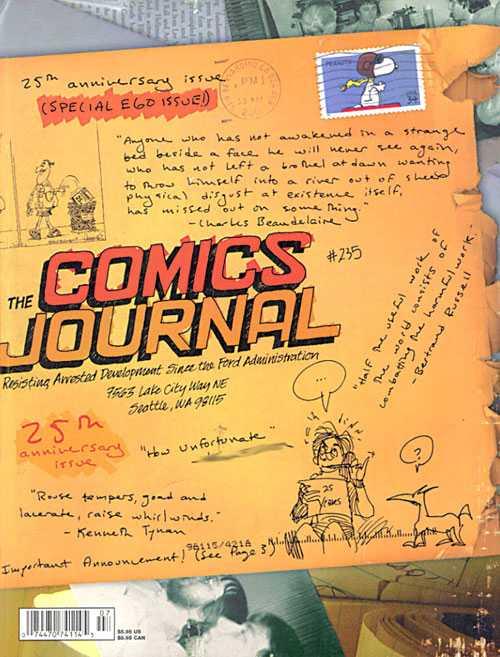 25th anniversary issue
(SPECIAL EGO ISSUE!)
PEANUTS
34
"Anyone who has not awakened in a strange
bed beside a face he will never see again,
who has not left a brothel at dawn wanting
to throw himself into a river out of sheer
physical disgust at existence itself,
has missed out on something."
- Charles Beaudelaire
THE
COMICS
JOURNAL
#235
Resisting Arrested Development Since the Ford Administration
7563 Lake City Way NE
Seattle, WA 98115
"Half the useful work of
the world consists of
combatting the harmful work."
- Bertrand Russell
25th
anniversary
issue
"How Unfortunate"
"Rouse tempers, goad and
lacerate, raise whirlwinds."
- Kenneth Tynan
25
YEARS
?
98115/4218
Important Announcement! (See Page 3)
07
0 74470 74114 3
$5.95 US
$8.95 CAN